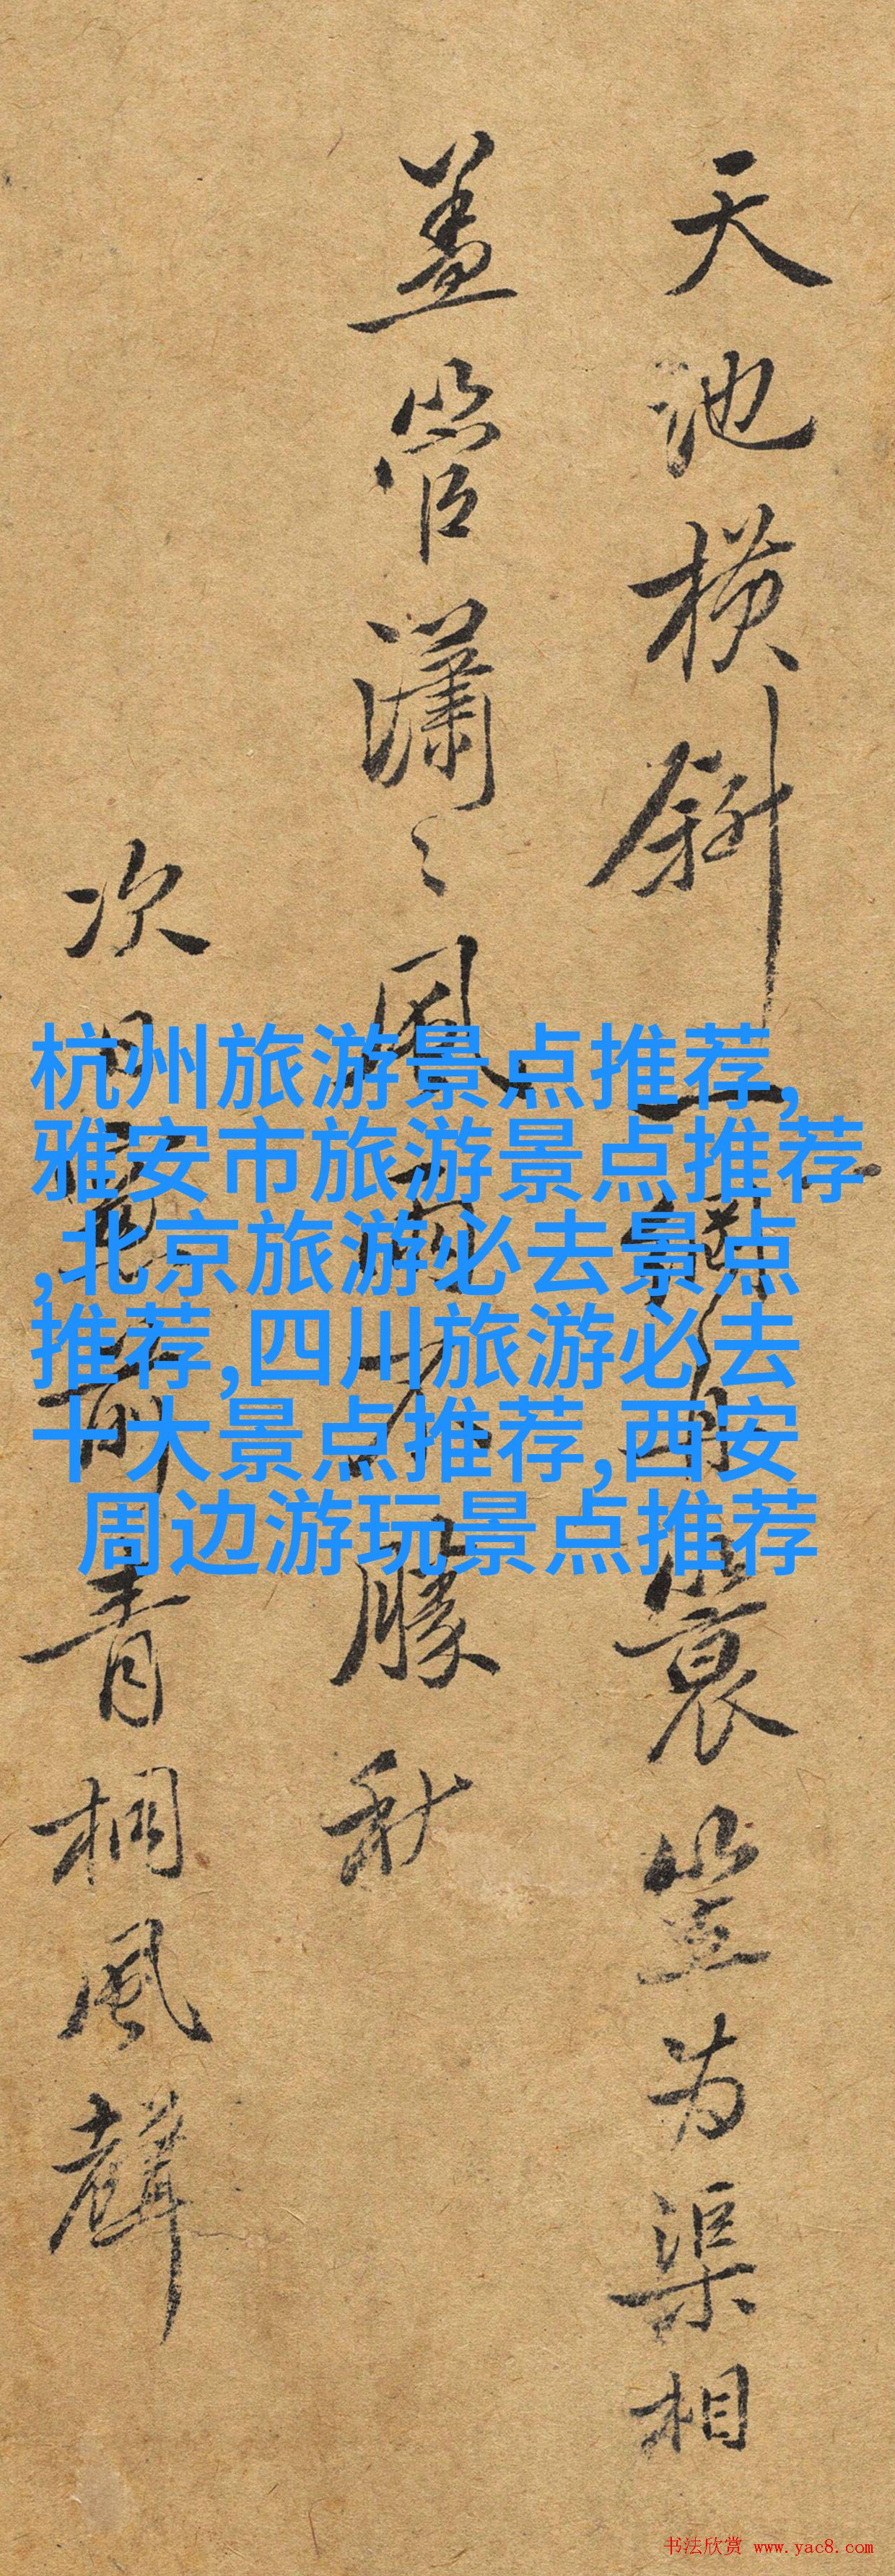 天池横斜一蓑笠为渠相
盖管瀟〻風雨不勝秋
次日前青桐風聲
杭州旅游景点推荐,
雅安市旅游景点推荐
,北京旅游必去景点
推荐,四川旅游必去
十大景点推荐,西安
周边游玩景点推荐
书法欣赏 www.yac8.com